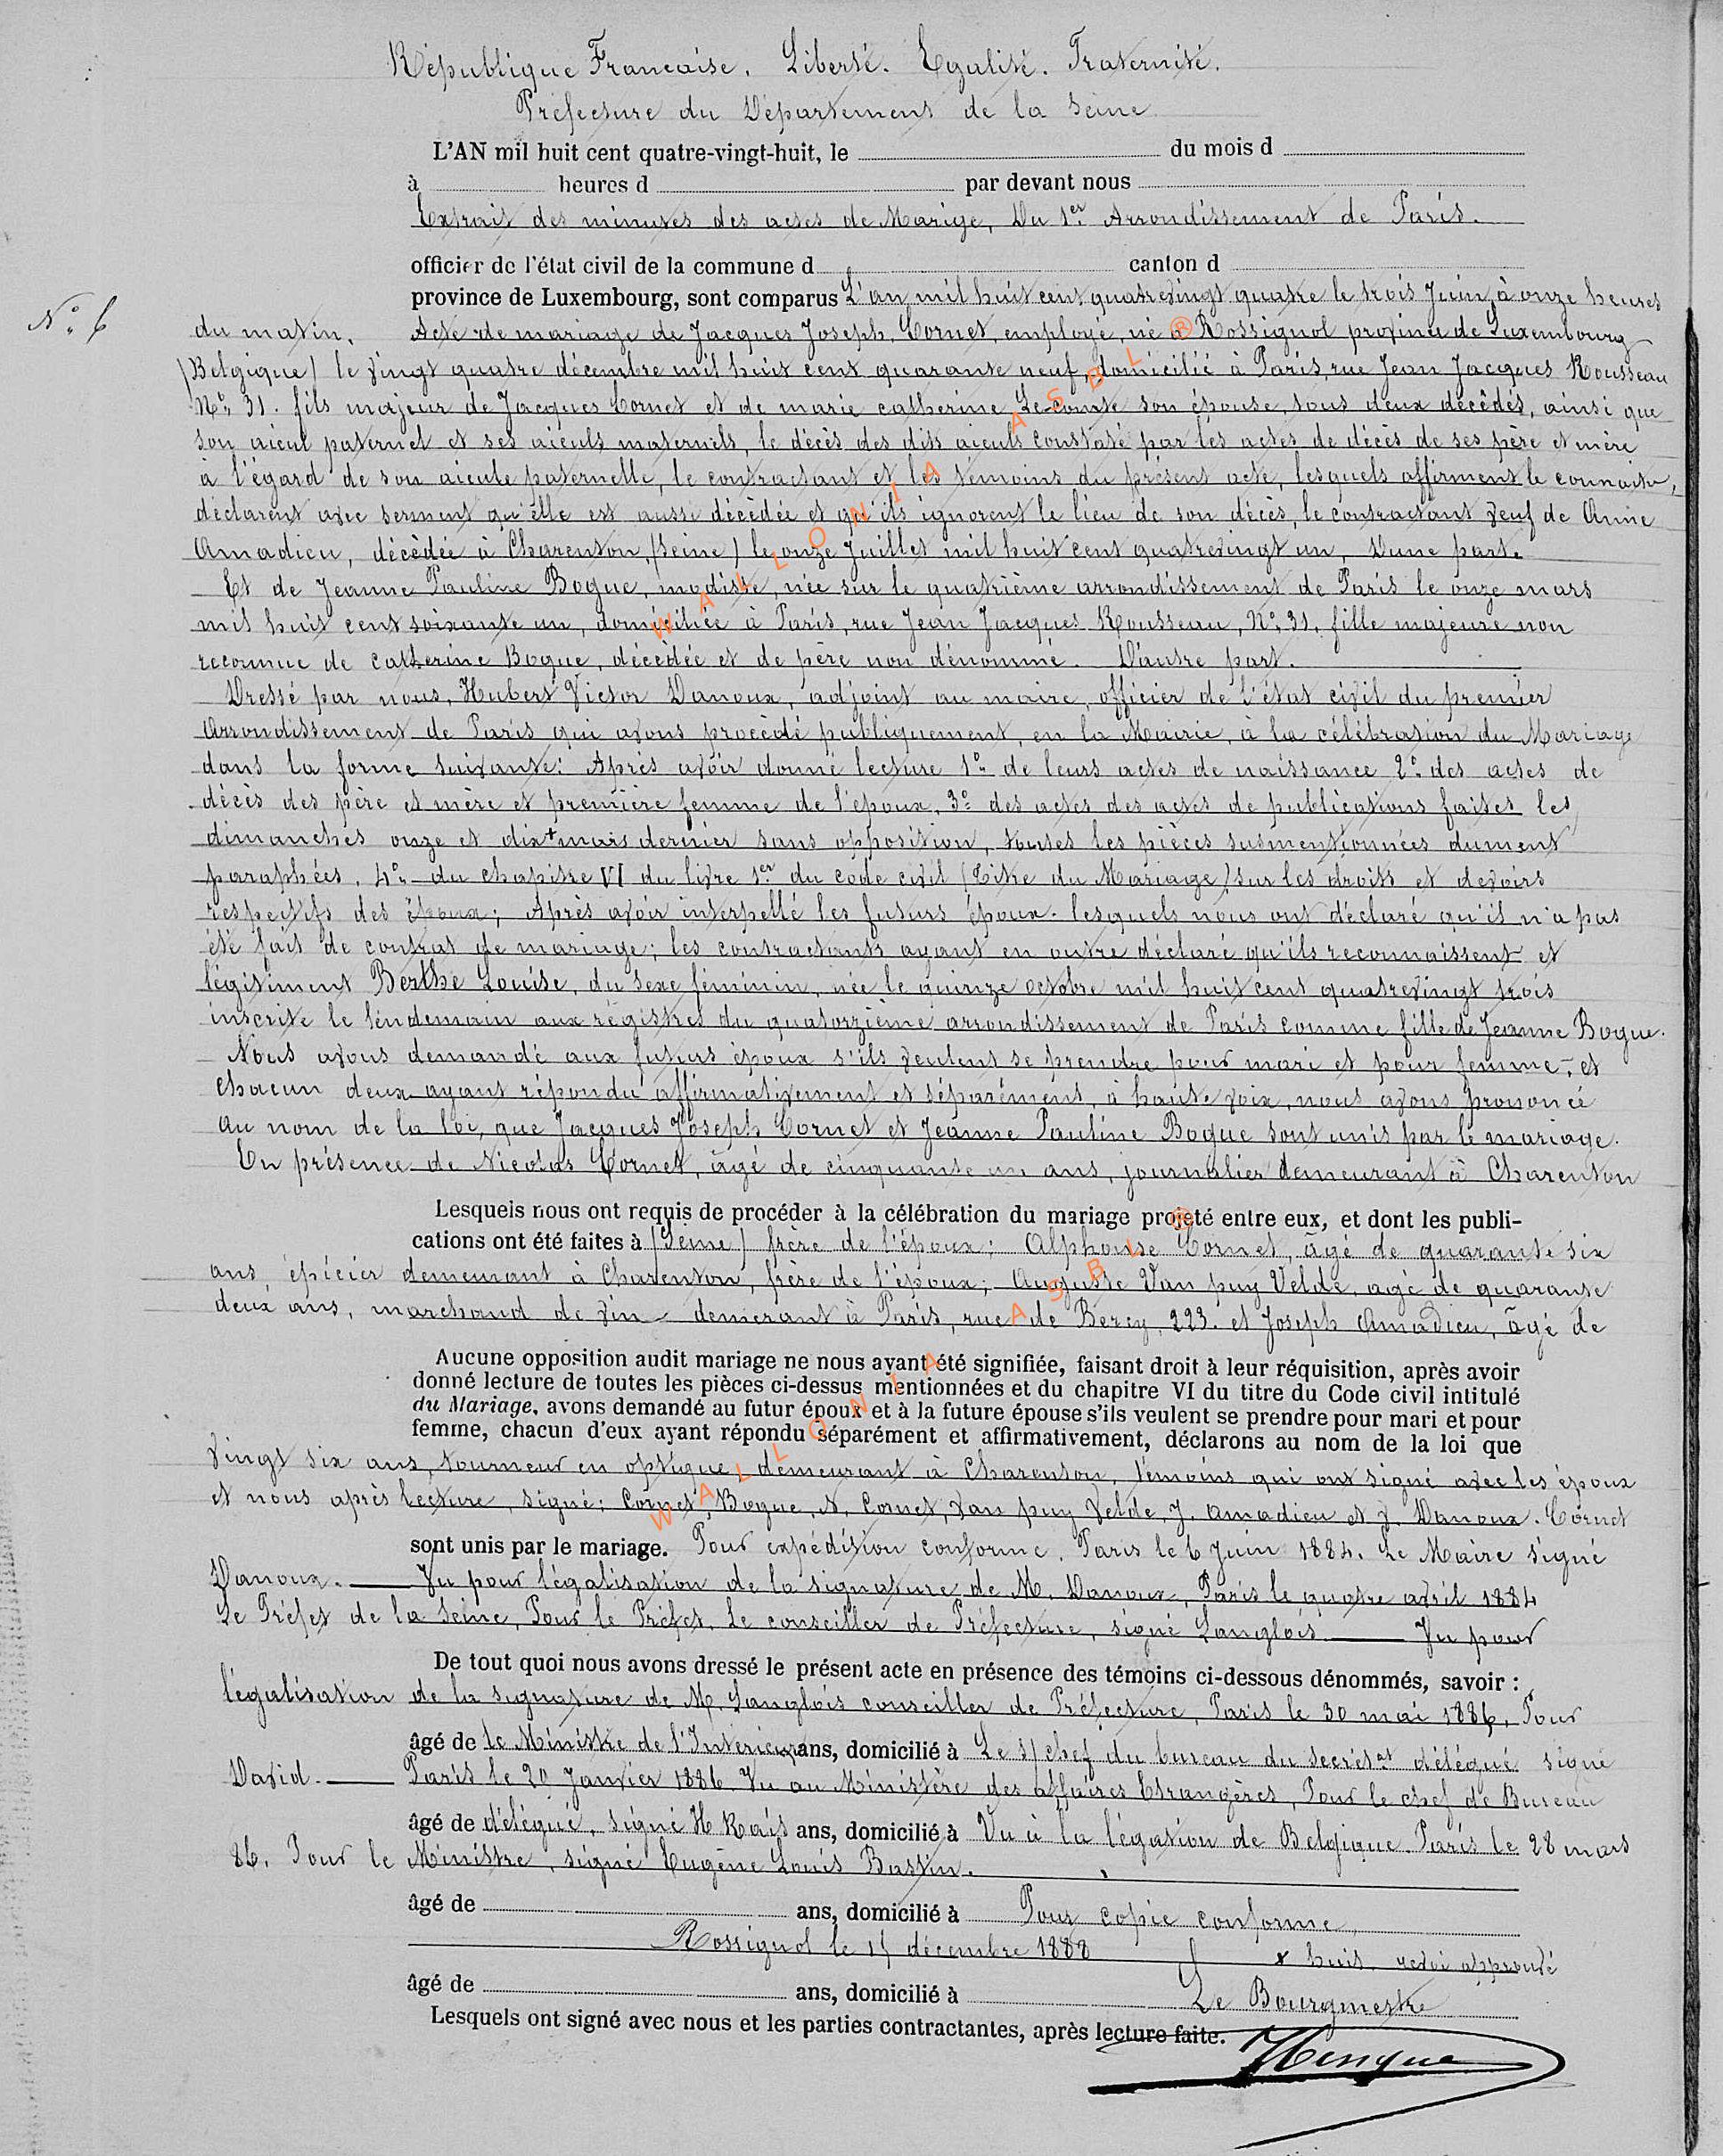 République Francaise. Liberté. Egalité. Fraternité.
Préfecture du Département de la Seine
L'AN mil huit cent quatre-vingt-huit, le du mois d
à heures d par devant nous
Extrait des minutes des actes de Marige, Du 1er Arrondissement de Paris.
officier de l'état civil de la commune d canton d
province de Luxembourg, sont comparus L'an mil huit cent quatrevingt quatre le trois Juin, à onze heures
N° 6
du matin. Acte de mariage de Jacques Joseph Cornet, employé, né à Rossignol province de Luxembourg
(Belgique) le vingt quatre décembre mil huit cent quarante neuf, domicilié à Paris, rue Jean Jacques Rousseau
N° 31. fils majeur de Jacques Cornet et de marie catherine Le-comte son épouse, tous deux décédés, ainsi que
son aieul paternel et ses aieuls maternels, le décès des dits aieuls constaté par les actes de décès de ses père et mère
à l'égard de son aieule paternelle, le contractant et les témoins du présent acte, lesquels affirment le connaitre,
déclarent avec serment qu'elle est aussi décédée et qu'ils ignorent le lieu de son décès, le contractant veuf de Anne
Amadieu, décédée à Charenton, (Seine) le onze Juillet mil huit cent quatrevingt un, D'une part.
Et de Jeanne Pauline Bogue, modiste, née sur le quatrième arrondissement de Paris le onze mars
mil huit cent soixante un, domiciliée à Paris, rue Jean Jacques Rousseau, N° 31. fille majeure non
reconnue de catherine Bogue, décédée et de père non dénommé. D'autre part.
Dressé par nous, Hubert Victor Danoux, adjoint au maire, officier de l'état civil du premier
Arrondissement de Paris qui avons procédé publiquement, en la Mairie, à la célébration du Mariage
dans la forme suivante: Après avoir donné lecture 1° de leurs actes de naissance 2° des actes de
décès des père et mère et première femme de l'époux, 3° des actes des actes de publications faites les
dimanches onze et dix + mars dernier sans opposition, toutes les pièces susmentionnées dument
paraphées, 4° du chapitre VI du livre 1er du code civil (Titre du Mariage) sur les droits et devoirs
respectifs des époux; Après avoir interpellé les futurs époux. lesquels nous ont déclaré qu'il n'a pas
été fait de contrat de mariage; les contractants ayant en outre déclaré qu'ils reconnaissent et
légitiment Berthe Louise, du sexe féminin, née le quinze octobre mil huit cent quatrevingt trois
inscrite le lendemain aux régistres du quatorzième arrondissement de Paris comme fille de Jeanne Bogue.
Nous avons demandé aux futurs époux s'ils veulent se prendre pour mari et pour femme, et
chacun deux ayant répondu affirmativement et séparément, à haute voix, nous avons prononcé
au nom de la loi, que Jacques Joseph Cornet et Jeanne Pauline Bogue sont unis par le mariage.
En présence de Nicolas Cornet, âgé de cinquante un ans, journalier demeurant à Charenton
Lesquels nous ont requis de procéder à la célébration du mariage projeté entre eux, et dont les publi-
cations ont été faites à (Seine) frère de l'époux; Alphonse Cornet, âgé de quarante six
ans, épicier demeurant à Charenton, frère de l'époux; Auguste Van puy Velde, agé de quarante
deux ans, marchand de vin demerant à Paris, rue de Bercy, 223. et Joseph Amadieu, âgé de
Aucune opposition audit mariage ne nous ayant été signifiée, faisant droit à leur réquisition, après avoir
donné lecture de toutes les pièces ci-dessus mentionnées et du chapitre VI du titre du Code civil intitulé
du Mariage, avons demandé au futur époux et à la future épouse s'ils veulent se prendre pour mari et pour
femme, chacun d'eux ayant répondu séparément et affirmativement, déclarons au nom de la loi que
vingt six ans, tourneur en optique, demeurant à Charenton, témoins qui ont signé avec les époux
et nous après lecture, signé: Cornet, Bogue, N. Cornet, van puy velde, J. Amadieu et V. Danoux. Cornet
sont unis par le mariage. Pour expédition conforme. Paris le 6 Juin 1884. Le Maire signé
Danoux. Vu pour légalisation de la signature de M. Danoux, Paris le quatre avril 1884
Le Préfet de la Seine, Pour le Préfet, Le conseiller de Préfecture, signé Langlois Vu pour
De tout quoi nous avons dressé le présent acte en présence des témoins ci-dessous dénommés, savoir :
légalisation de la signature de M. Langlois conseiller de Préfecture, Paris le 30 mai 1886, Pour
âgé de le Ministre de l'Intérieur ans, domicilié à Le s/chef du bureau du secrétat délégué signé
David. Paris le 20 Janvier 1886 Vu au Ministère des affaires Etrangères, Pour le chef de Bureau
âgé de délégué, signé H Rais ans, domicilié à Vu à la légation de Belgique. Paris le 28 mars
86. Pour le Ministre, signé Eugène Louis Bastin.
âgé de ans, domicilié à Pour copie conforme,
Rossignol le 14 décembre 1888 x huit, renvoi approuvé
âgé de ans, domicilié à Le Bourgmestre
Lesquels ont signé avec nous et les parties contractantes, après lecture faite.
WALLONIA ASBL ®
WALLONIA ASBL ®